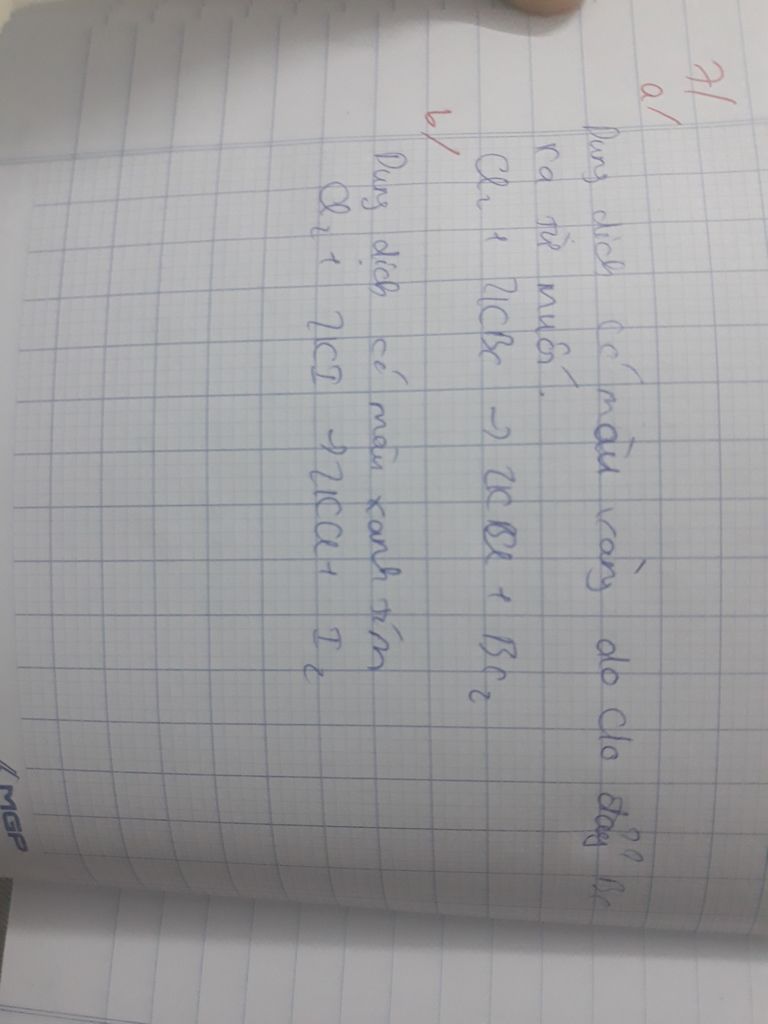 7/
a/
Dung dịch có màu vàng do Clo đẩy Br
ra từ muối.
Cl2 + 2KBr → 2KCl + Br2
b/
Dung dịch có màu xanh tím
Cl2 + 2KI → 2KCl + I2
MGP